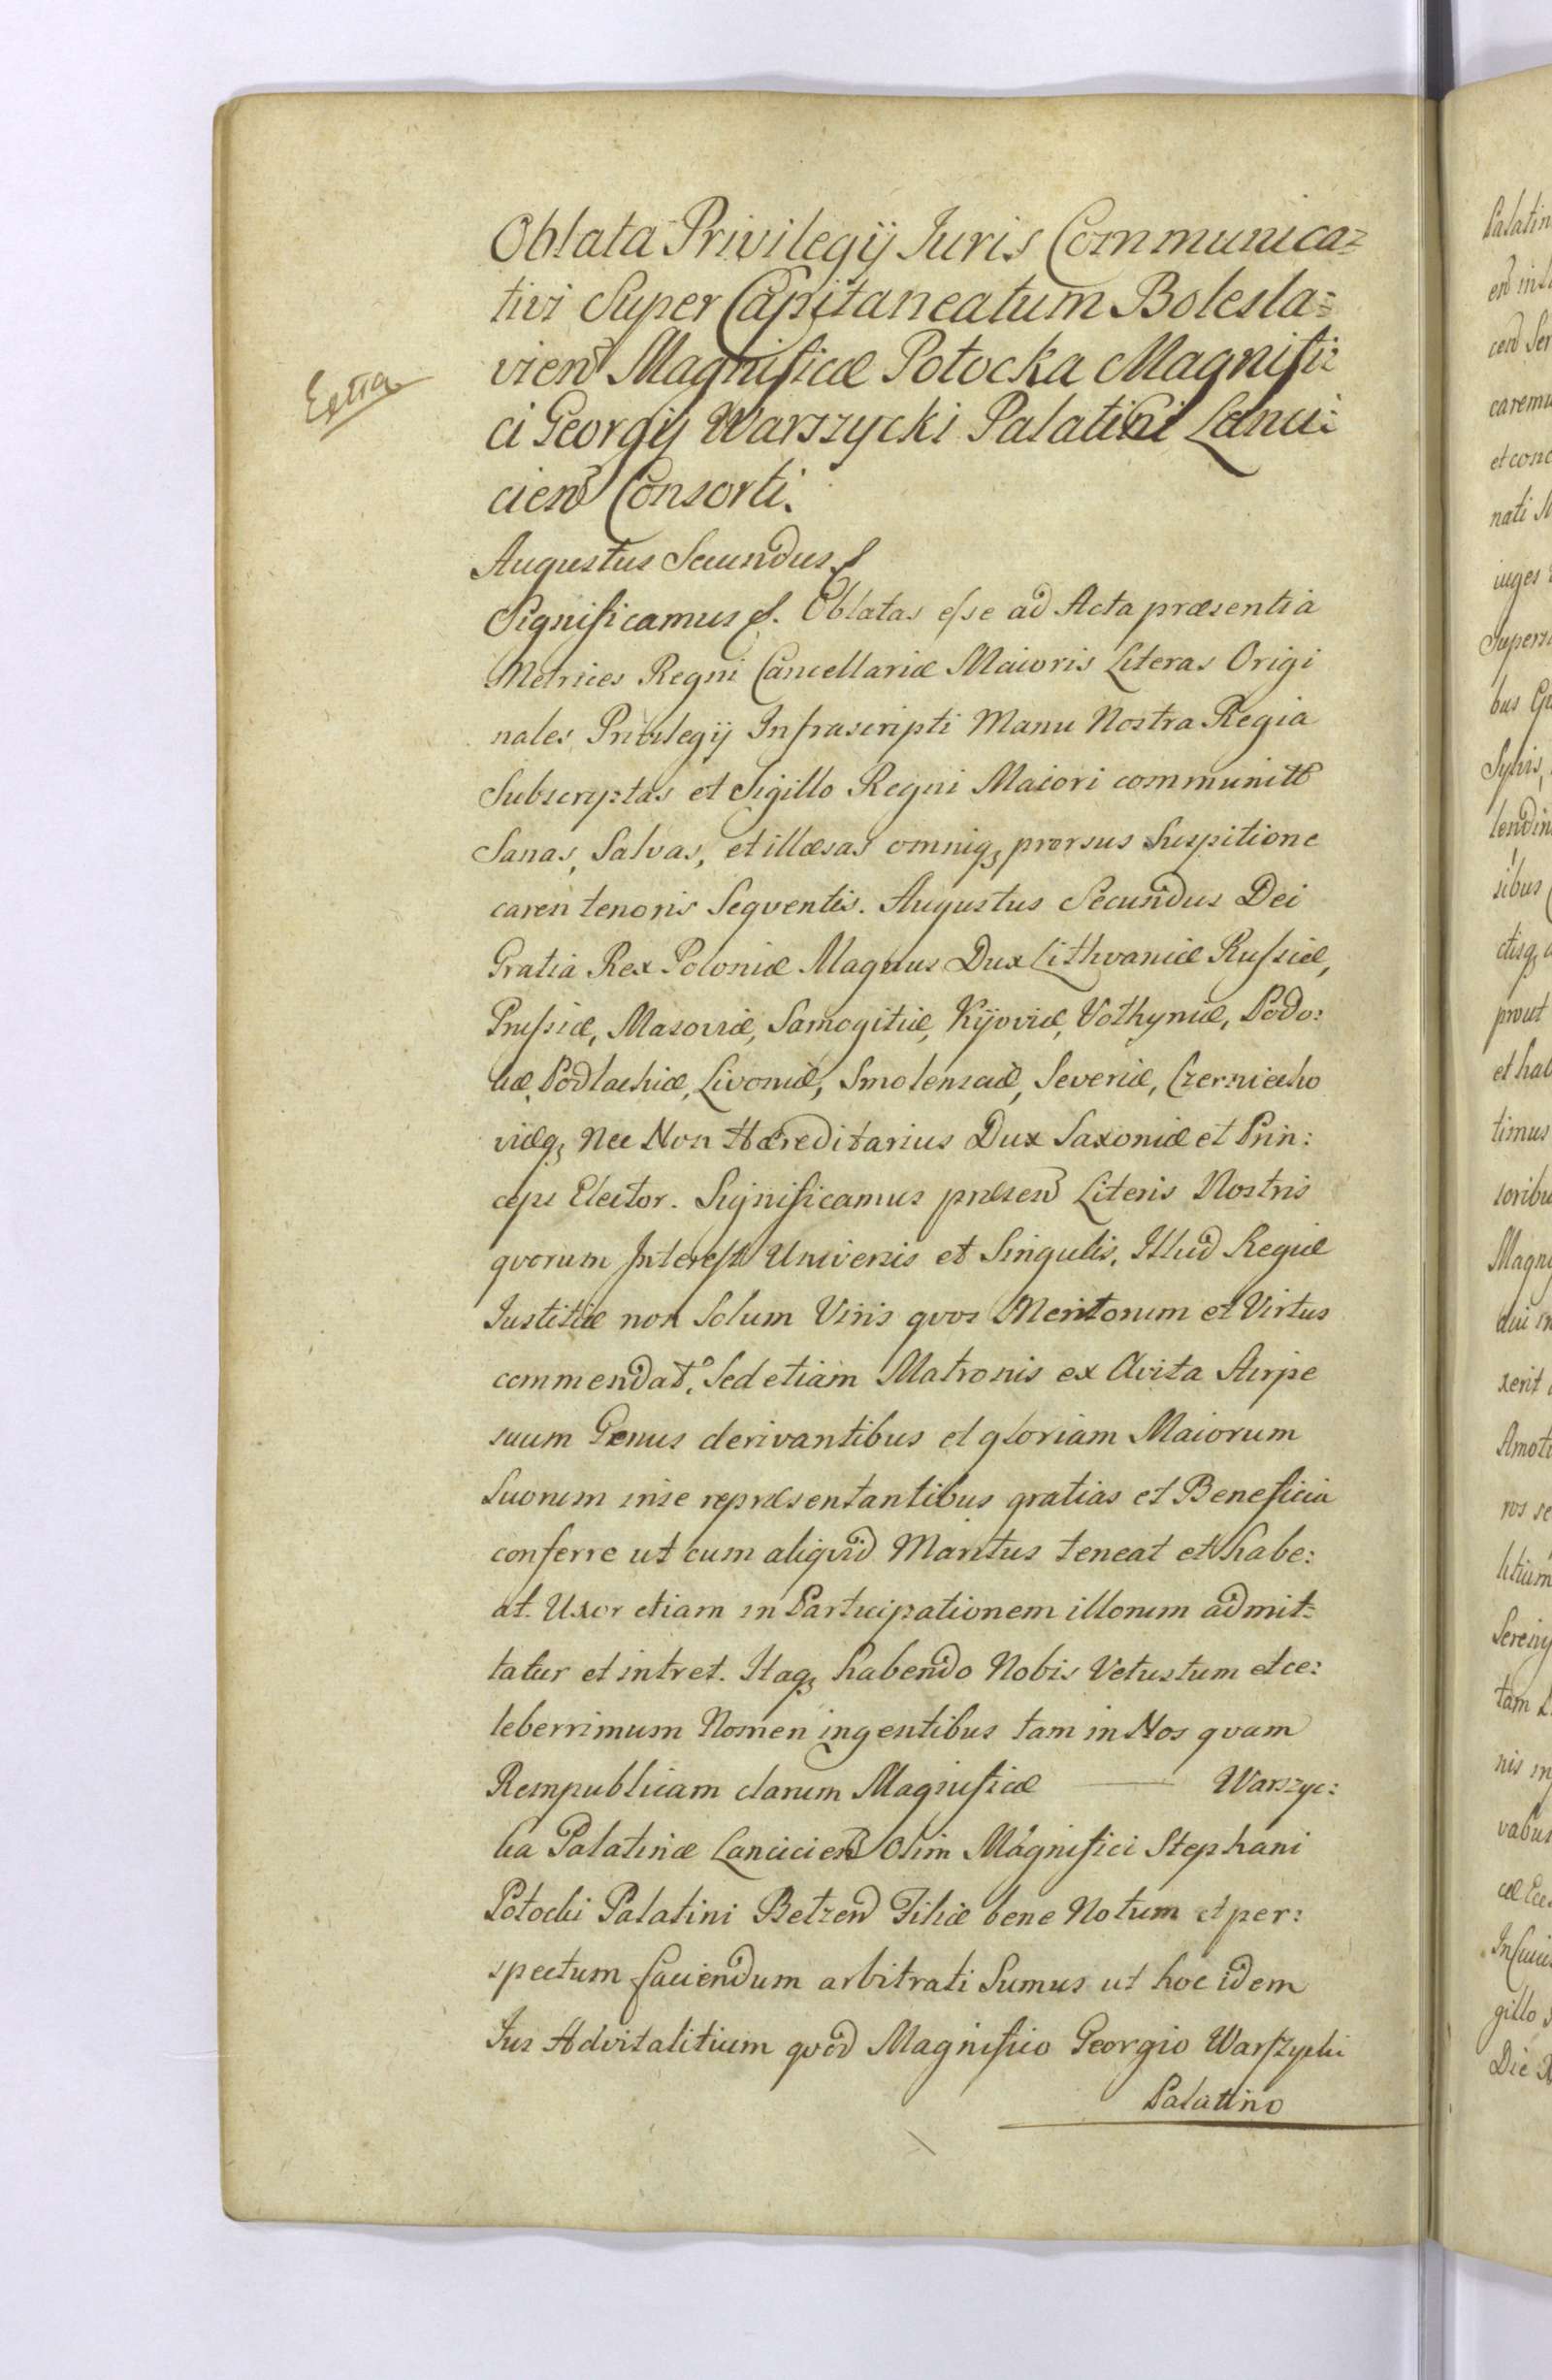 Oblata Privilegÿ Iuris Communica=
tivi Super Capitaneatum Bolesla=
vien Magnificæ Potocka Magnifi=
ci Georgÿ Warszycki Palatini Lanci=
cien Consorti.
Extra
Augustus Secundus
Significamus Oblatas esse ad Acta præsentia
Metrices Regni Cancellariæ Maioris Literas Origi
nales Privilegÿ Infrascripti Manu Nostra Regia
Subscriptas et Sigillo Regni Maiori communitt
Sanas, Salvas, et illæsas omniq, prorsus Suspitione
caren tenoris Seqventis. Augustus Secundus Dei
Gratia Rex Poloniæ Magnus Dux Lithvaniæ Russiæ,
Prussiæ, Masoviæ, Samogitiæ, Kÿoviæ, Volhyniæ, Podo:
liæ, Podlachiæ, Livoniæ, Smolensciæ, Severiæ, Czerniecho
viæq, Nec Non Hæreditarius Dux Saxoniæ et Prin:
ceps Elector. Significamus præsen Literis Nostris
qvorum Interest Universis et Singulis, Illud Regiæ
Iustitiæ non Solum Viris qvos Meritorum et Virtus
commendat, Sed etiam Matronis ex Avita Stirpe
suum Genus derivantibus et gloriam Maiorum
Suorum inse repræsentantibus gratias et Beneficia
conferre ut cum aliqvid Maritus teneat et habe:
at. Uxor etiam in Participationem illorum admit=
tatur et intret. Itaq, habendo Nobis Vetustum et ce:
leberrimum Nomen ingentibus tam in Nos qvam
Rempublicam clarum Magnificæ — Warszyc:
ka Palatinæ Lancicien Olim Magnifici Stephani
Potocki Palatini Betzen Filiæ bene Notum et per:
spectum faciendum arbitrati Sumus ut hoc idem
Ius Advitalitium qvod Magnifico Georgio Warszycki
Palatino